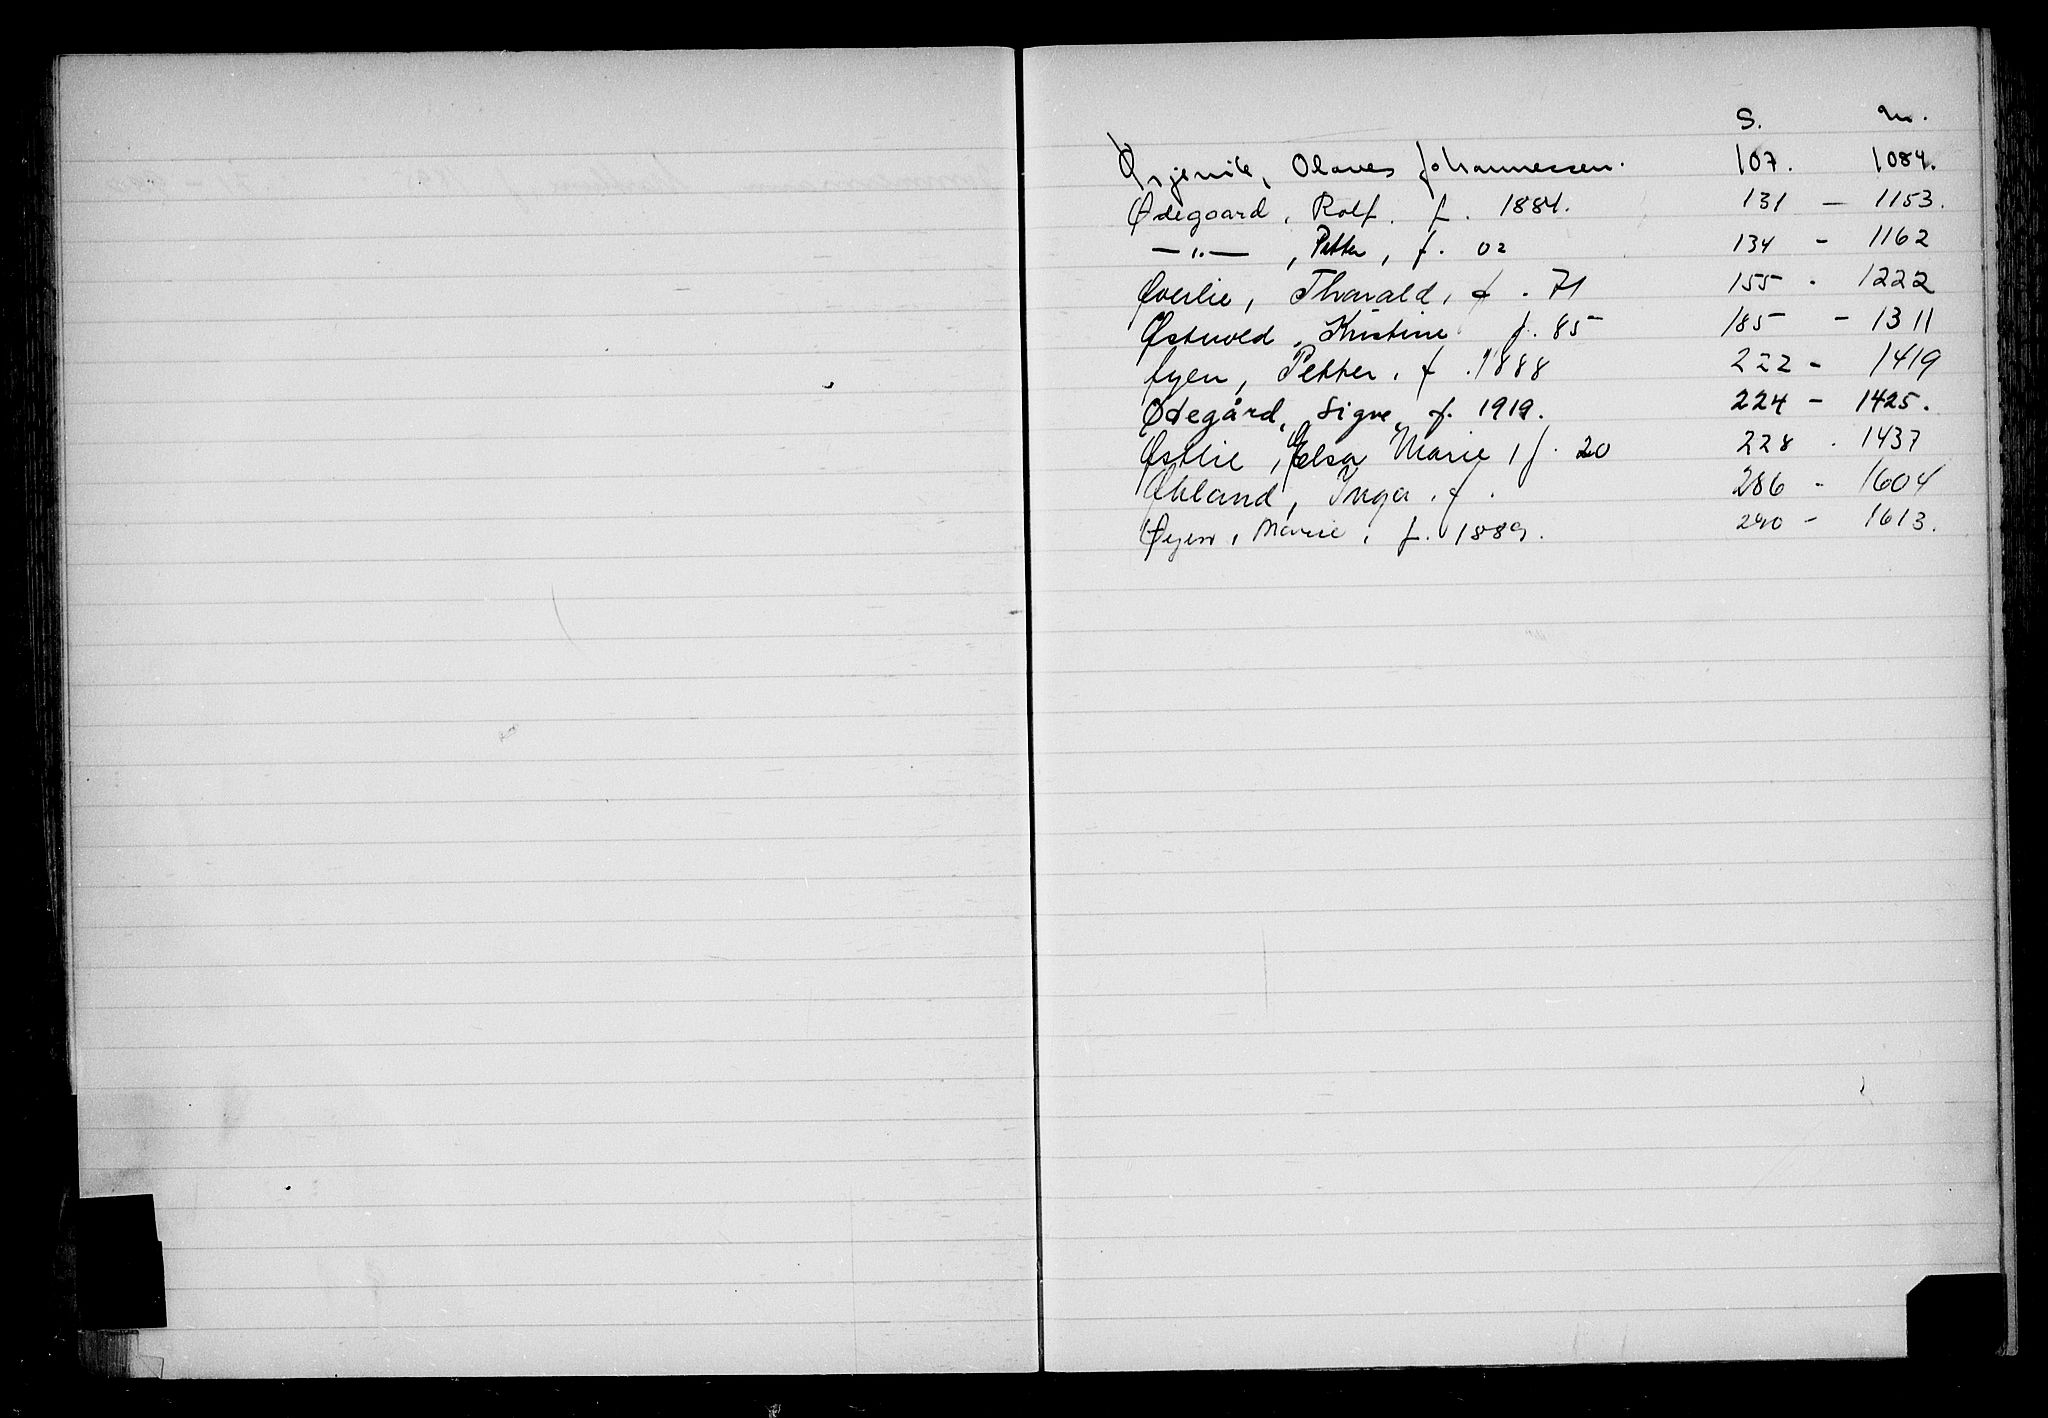 S. n.
Ørjevik, Olaves Johannessen. 107. 1084.
Ødegaard, Rolf. f. 1884. 131 — 1153.
—"— , Petter, f. 02 134 - 1162
Øverlie, Tharald, f. 71 155 - 1222
Østvold, Kristine f. 85 185 - 1311
Øyen, Petter. f. 1888 222 - 1419
Ødegård, Signe, f. 1919. 224 - 1425.
Østlie, Elsa Marie, f. 20 228 . 1437
Økland, Inga. f. 286 - 1604
Øyen, Marie, f. 1889. 290 - 1613.